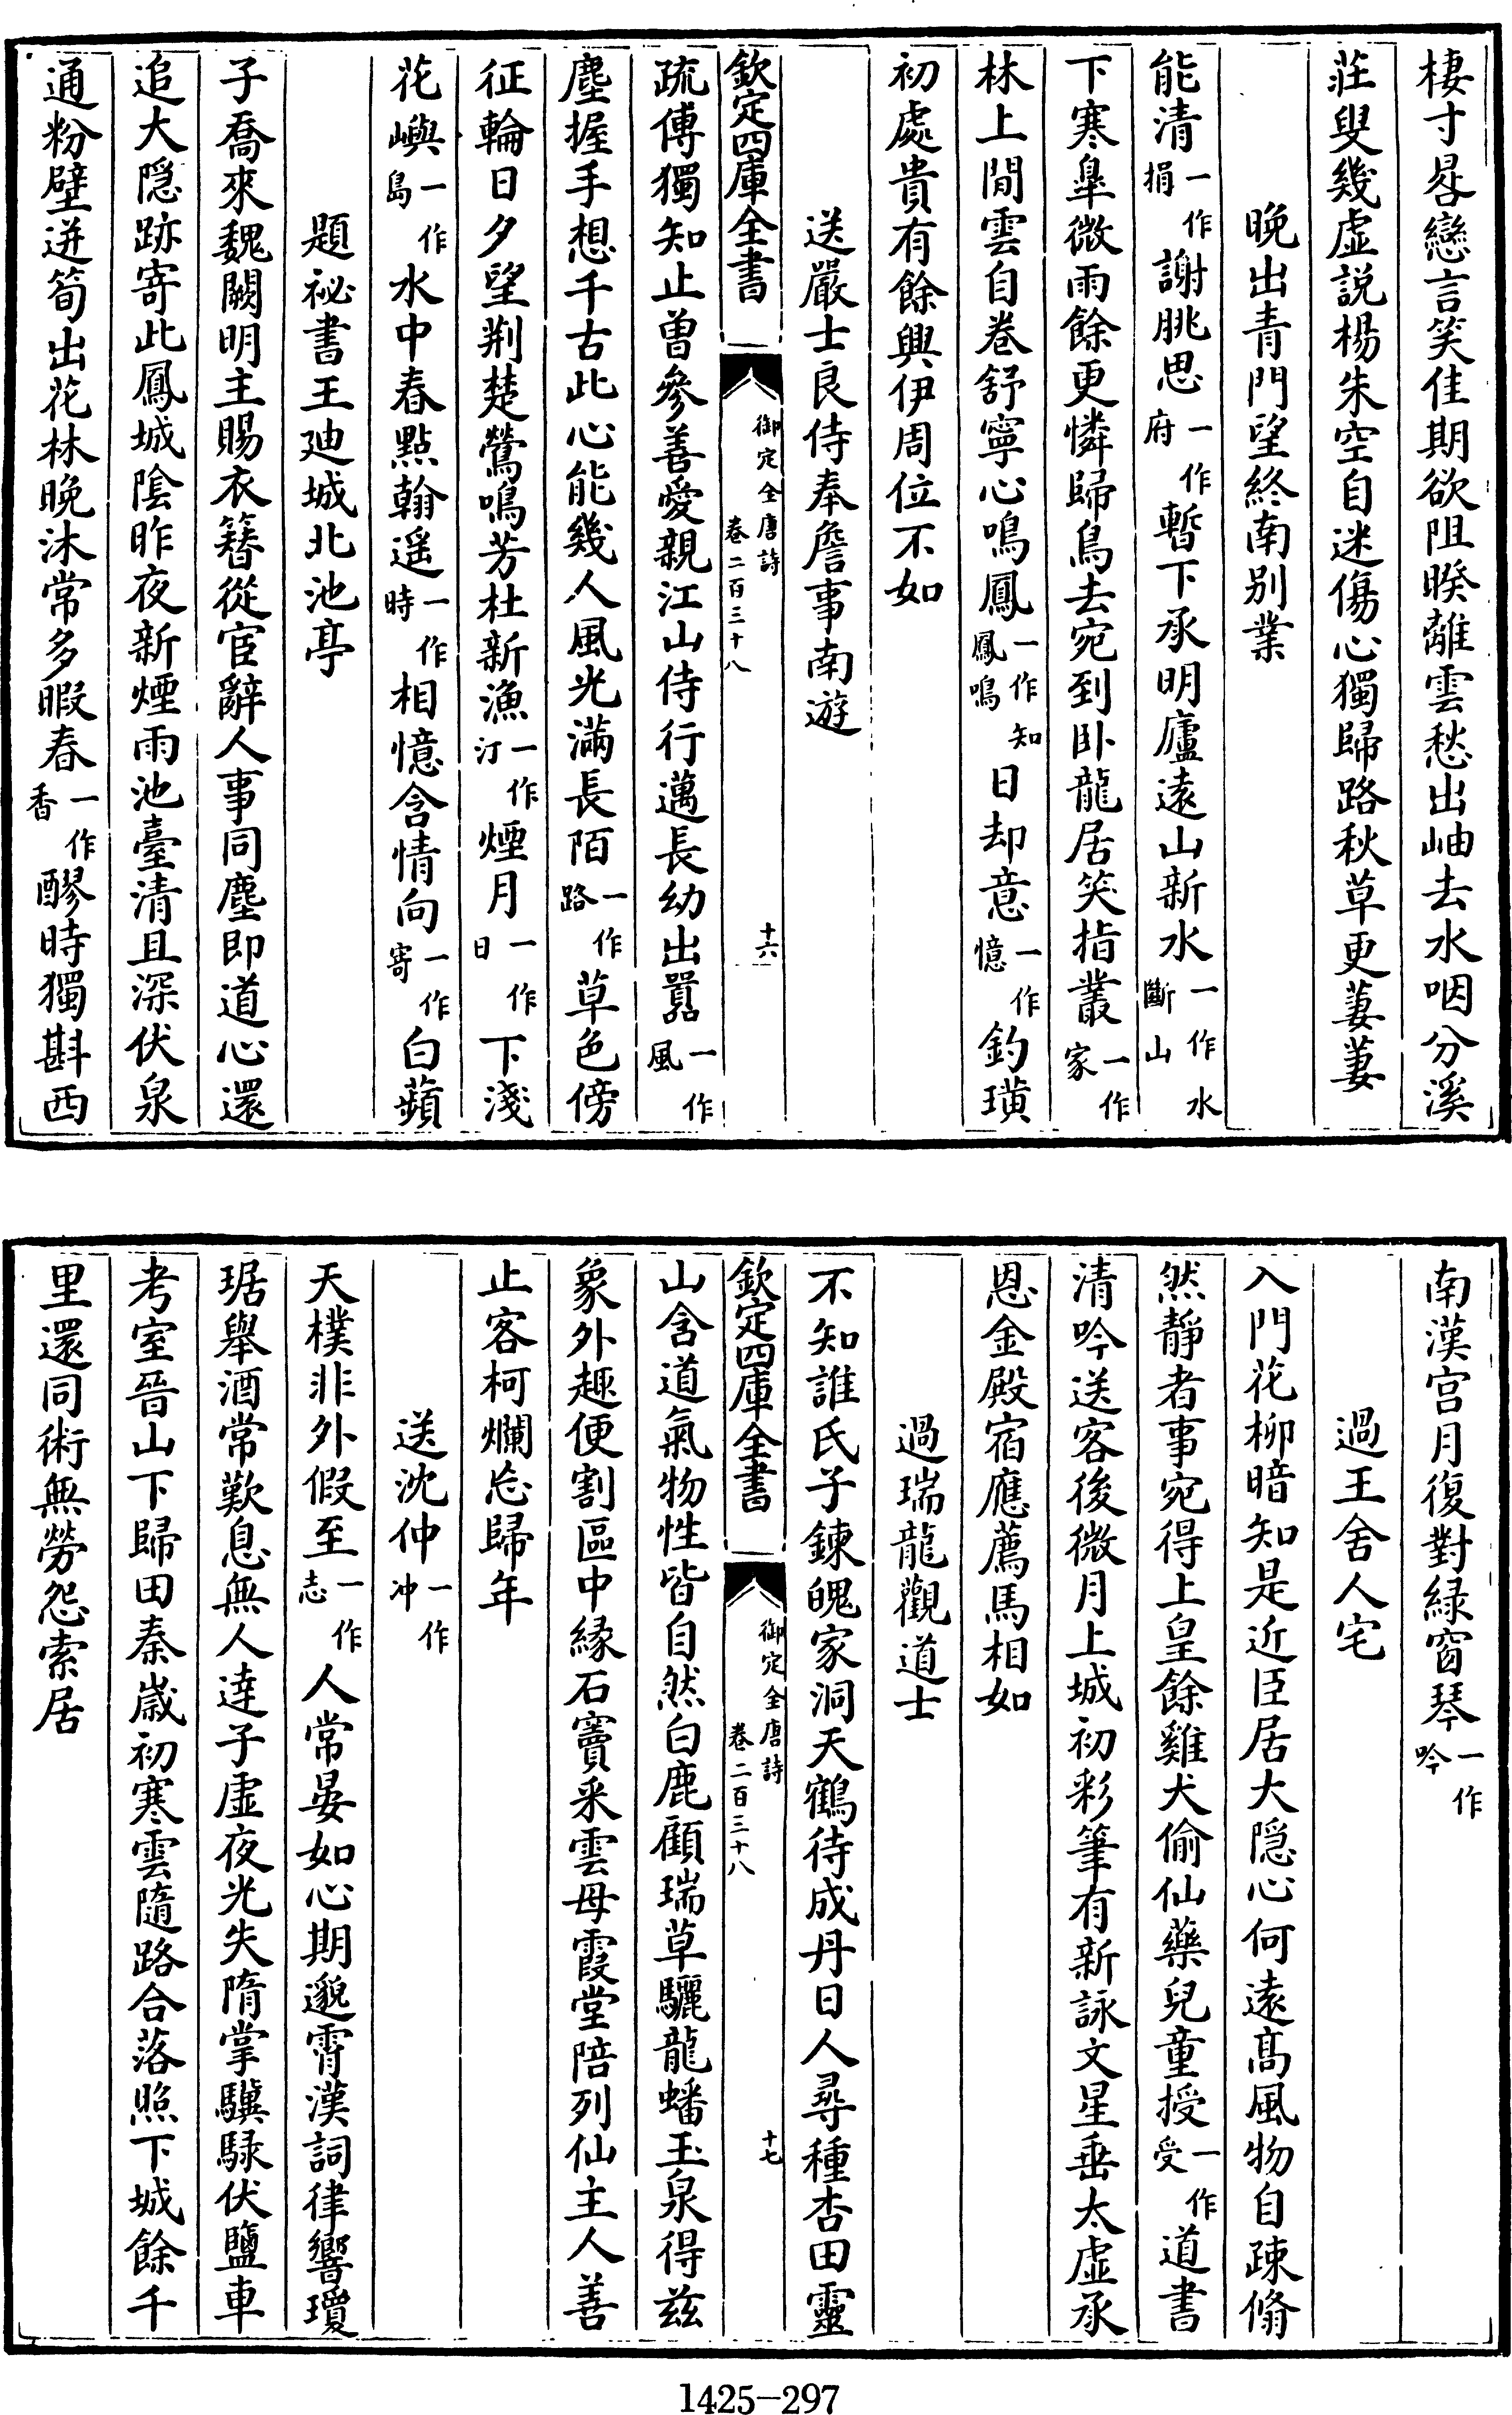 棲寸晷戀言笑佳期欲阻暌離雲愁出岫去水咽分溪
莊叟幾虛説楊朱空自迷傷心獨歸路秋草更萋萋
晚出青門望終南别業
能清一作捐謝朓思一作府暫下承明廬遠山新水一作水斷山
下寒臯微雨餘更憐歸鳥去宛到卧龍居笑指叢一作家
林上閒雲自卷舒寧心鳴鳳一作知鳳鳴日却意一作憶釣璜
初處貴有餘興伊周位不如
送嚴士良侍奉詹事南遊
欽定四庫全書 御定全唐詩卷二百三十八 十六
疏傅獨知止曾參善愛親江山侍行邁長幼出囂一作風
塵握手想千古此心能幾人風光滿長陌一作路草色傍
征輪日夕望荆楚鶯鳴芳杜新漁一作汀煙月一作日下淺
花嶼一作島水中春點翰遥一作時相憶含情向一作寄白蘋
題祕書王迪城北池亭
子喬來魏闕明主賜衣簪從宦辭人事同塵即道心還
追大隠跡寄此鳳城陰昨夜新煙雨池臺清且深伏泉
通粉壁迸筍出花林晚沐常多暇春一作香醪時獨斟西
南漢宫月復對緑窗琴一作吟
過王舍人宅
入門花柳暗知是近臣居大隠心何遠髙風物自疎翛
然靜者事宛得上皇餘雞犬偷仙藥兒童授一作受道書
清吟送客後微月上城初彩筆有新詠文星垂太虛承
恩金殿宿應薦馬相如
過瑞龍觀道士
不知誰氏子鍊魄家洞天鶴待成丹日人尋種杏田靈
欽定四庫全書 御定全唐詩卷二百三十八 十七
山含道氣物性皆自然白鹿顧瑞草驪龍蟠玉泉得兹
象外趣便割區中緣石竇采雲母霞堂陪列仙主人善
止客柯爛忘歸年
送沈仲一作冲
天樸非外假至一作志人常晏如心期邈霄漢詞律響瓊
琚舉酒常歎息無人逹子虛夜光失隋掌驥騄伏鹽車
考室晉山下歸田秦歳初寒雲隨路合落照下城餘千
里還同術無勞怨索居
1425-297